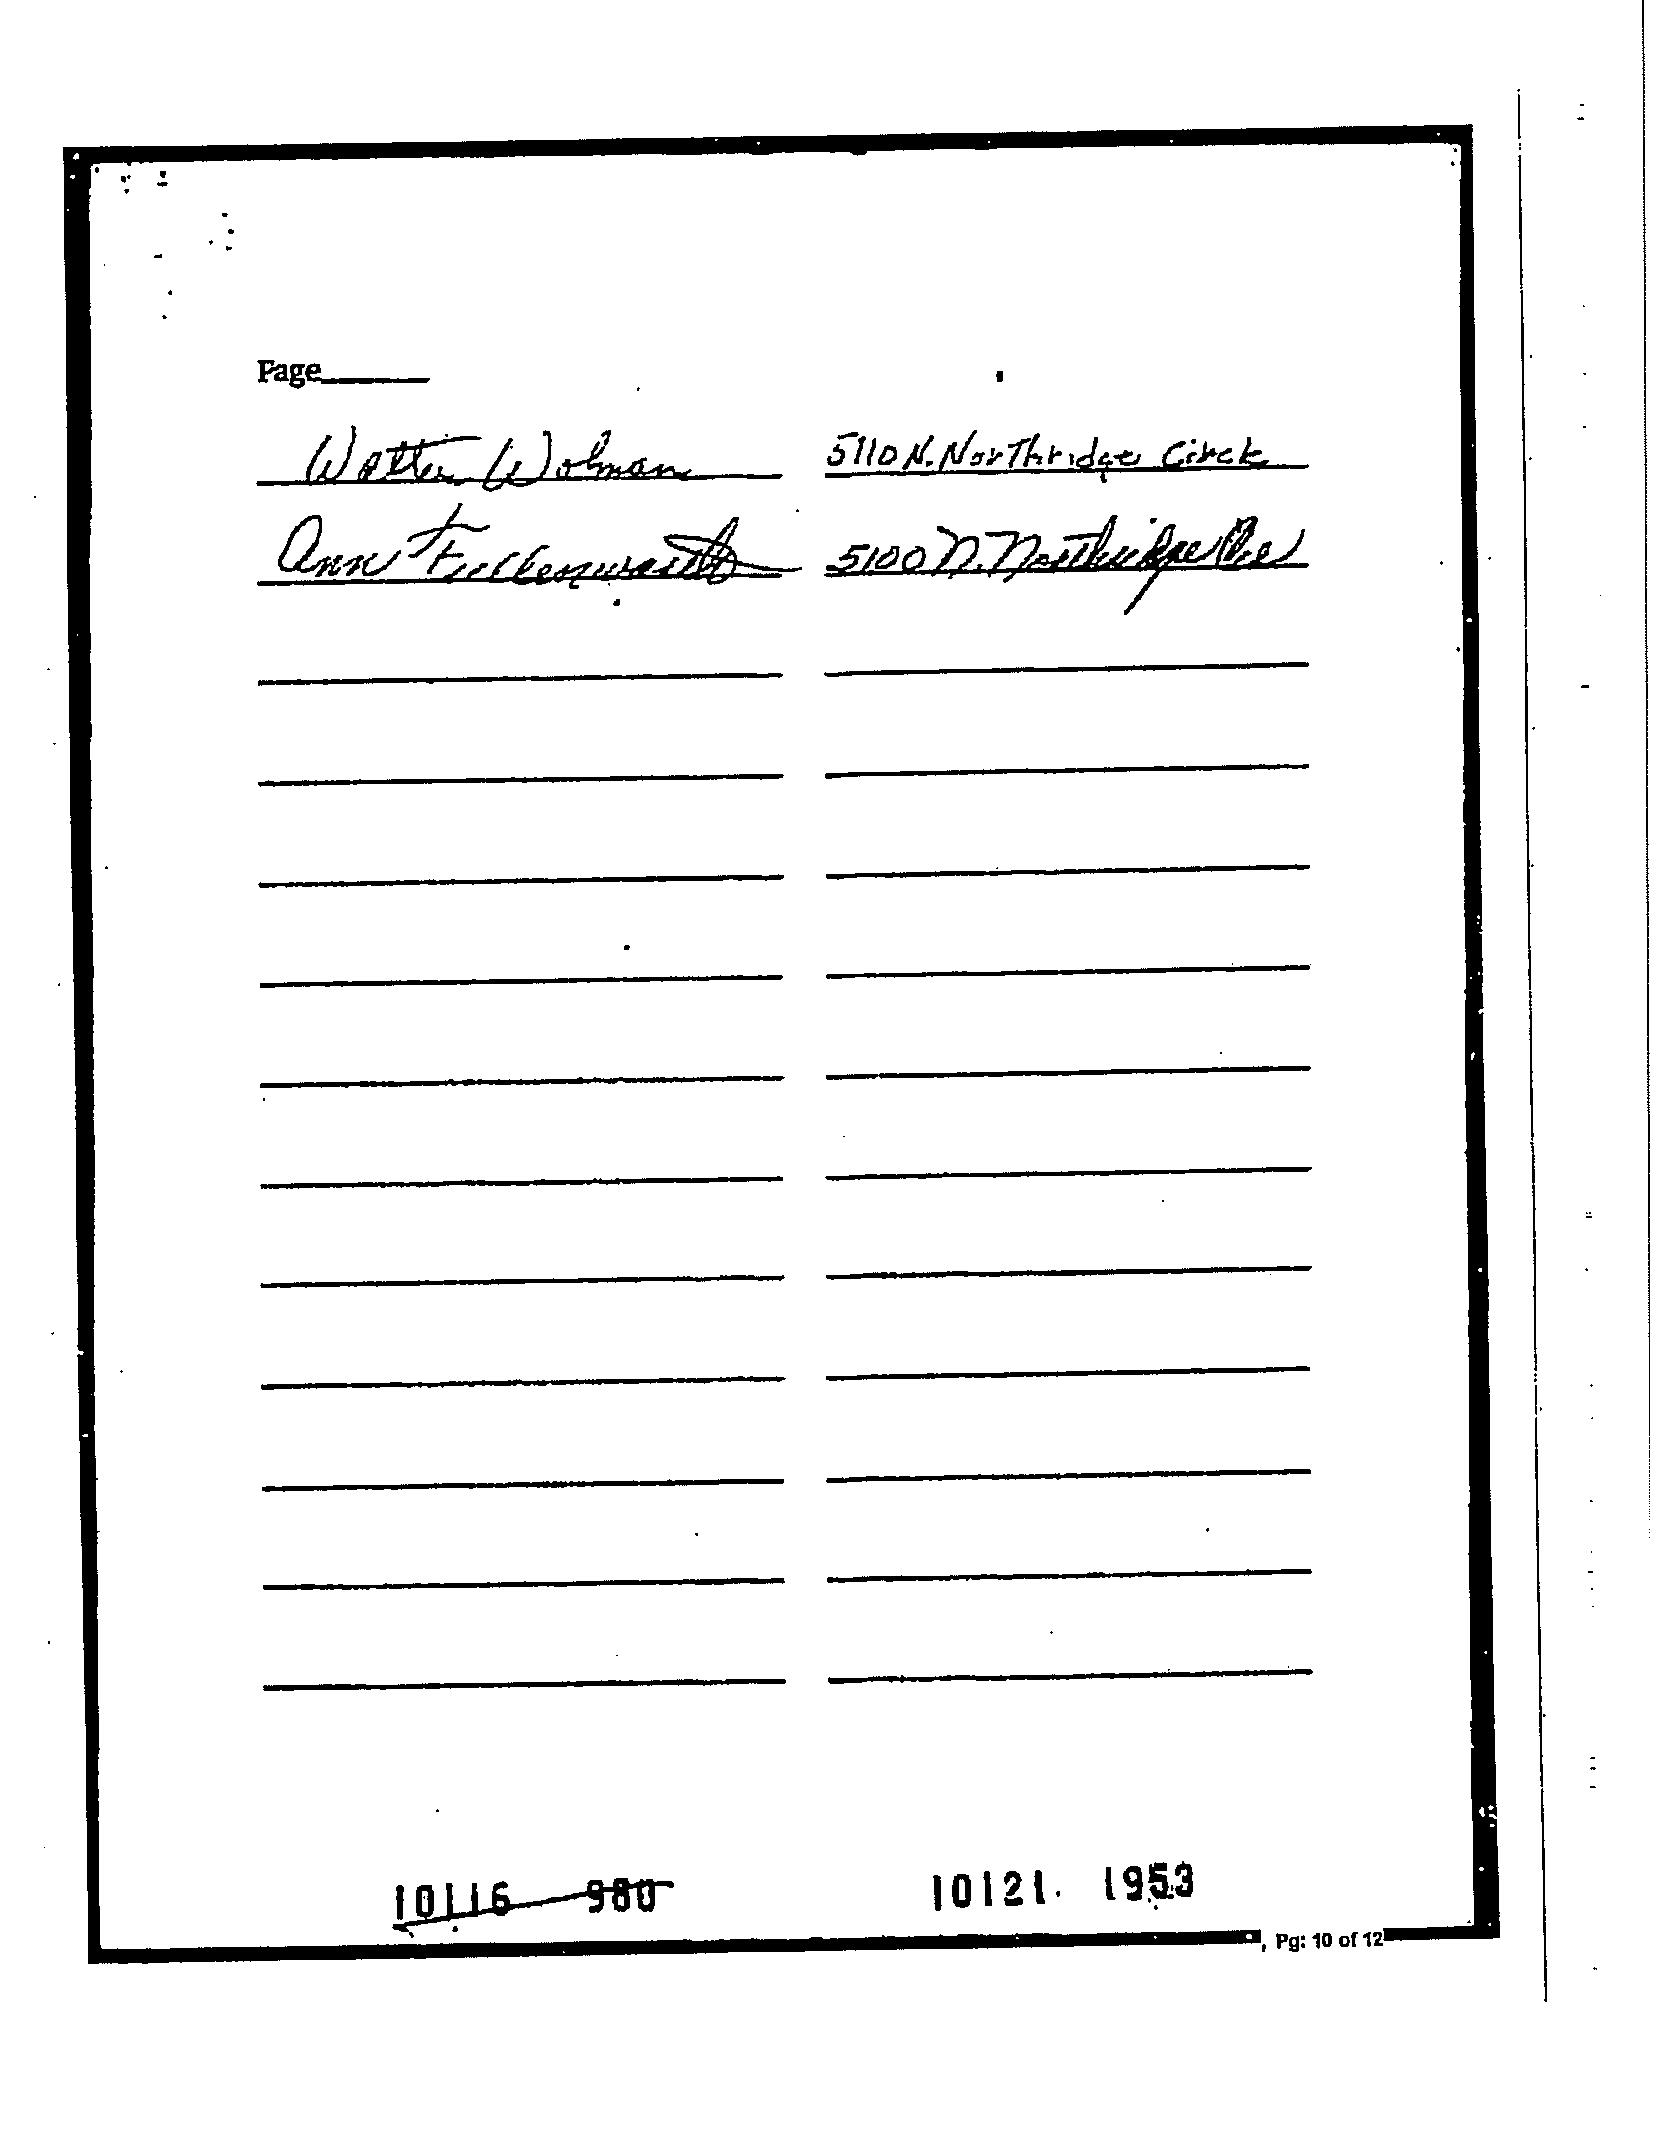 Page______
Walter Wolman 5110 N. Northridge Circle
Ann Fullenwardt 5100 N. Northridge Cir
10116 980 10121. 1953
, Pg: 10 of 12